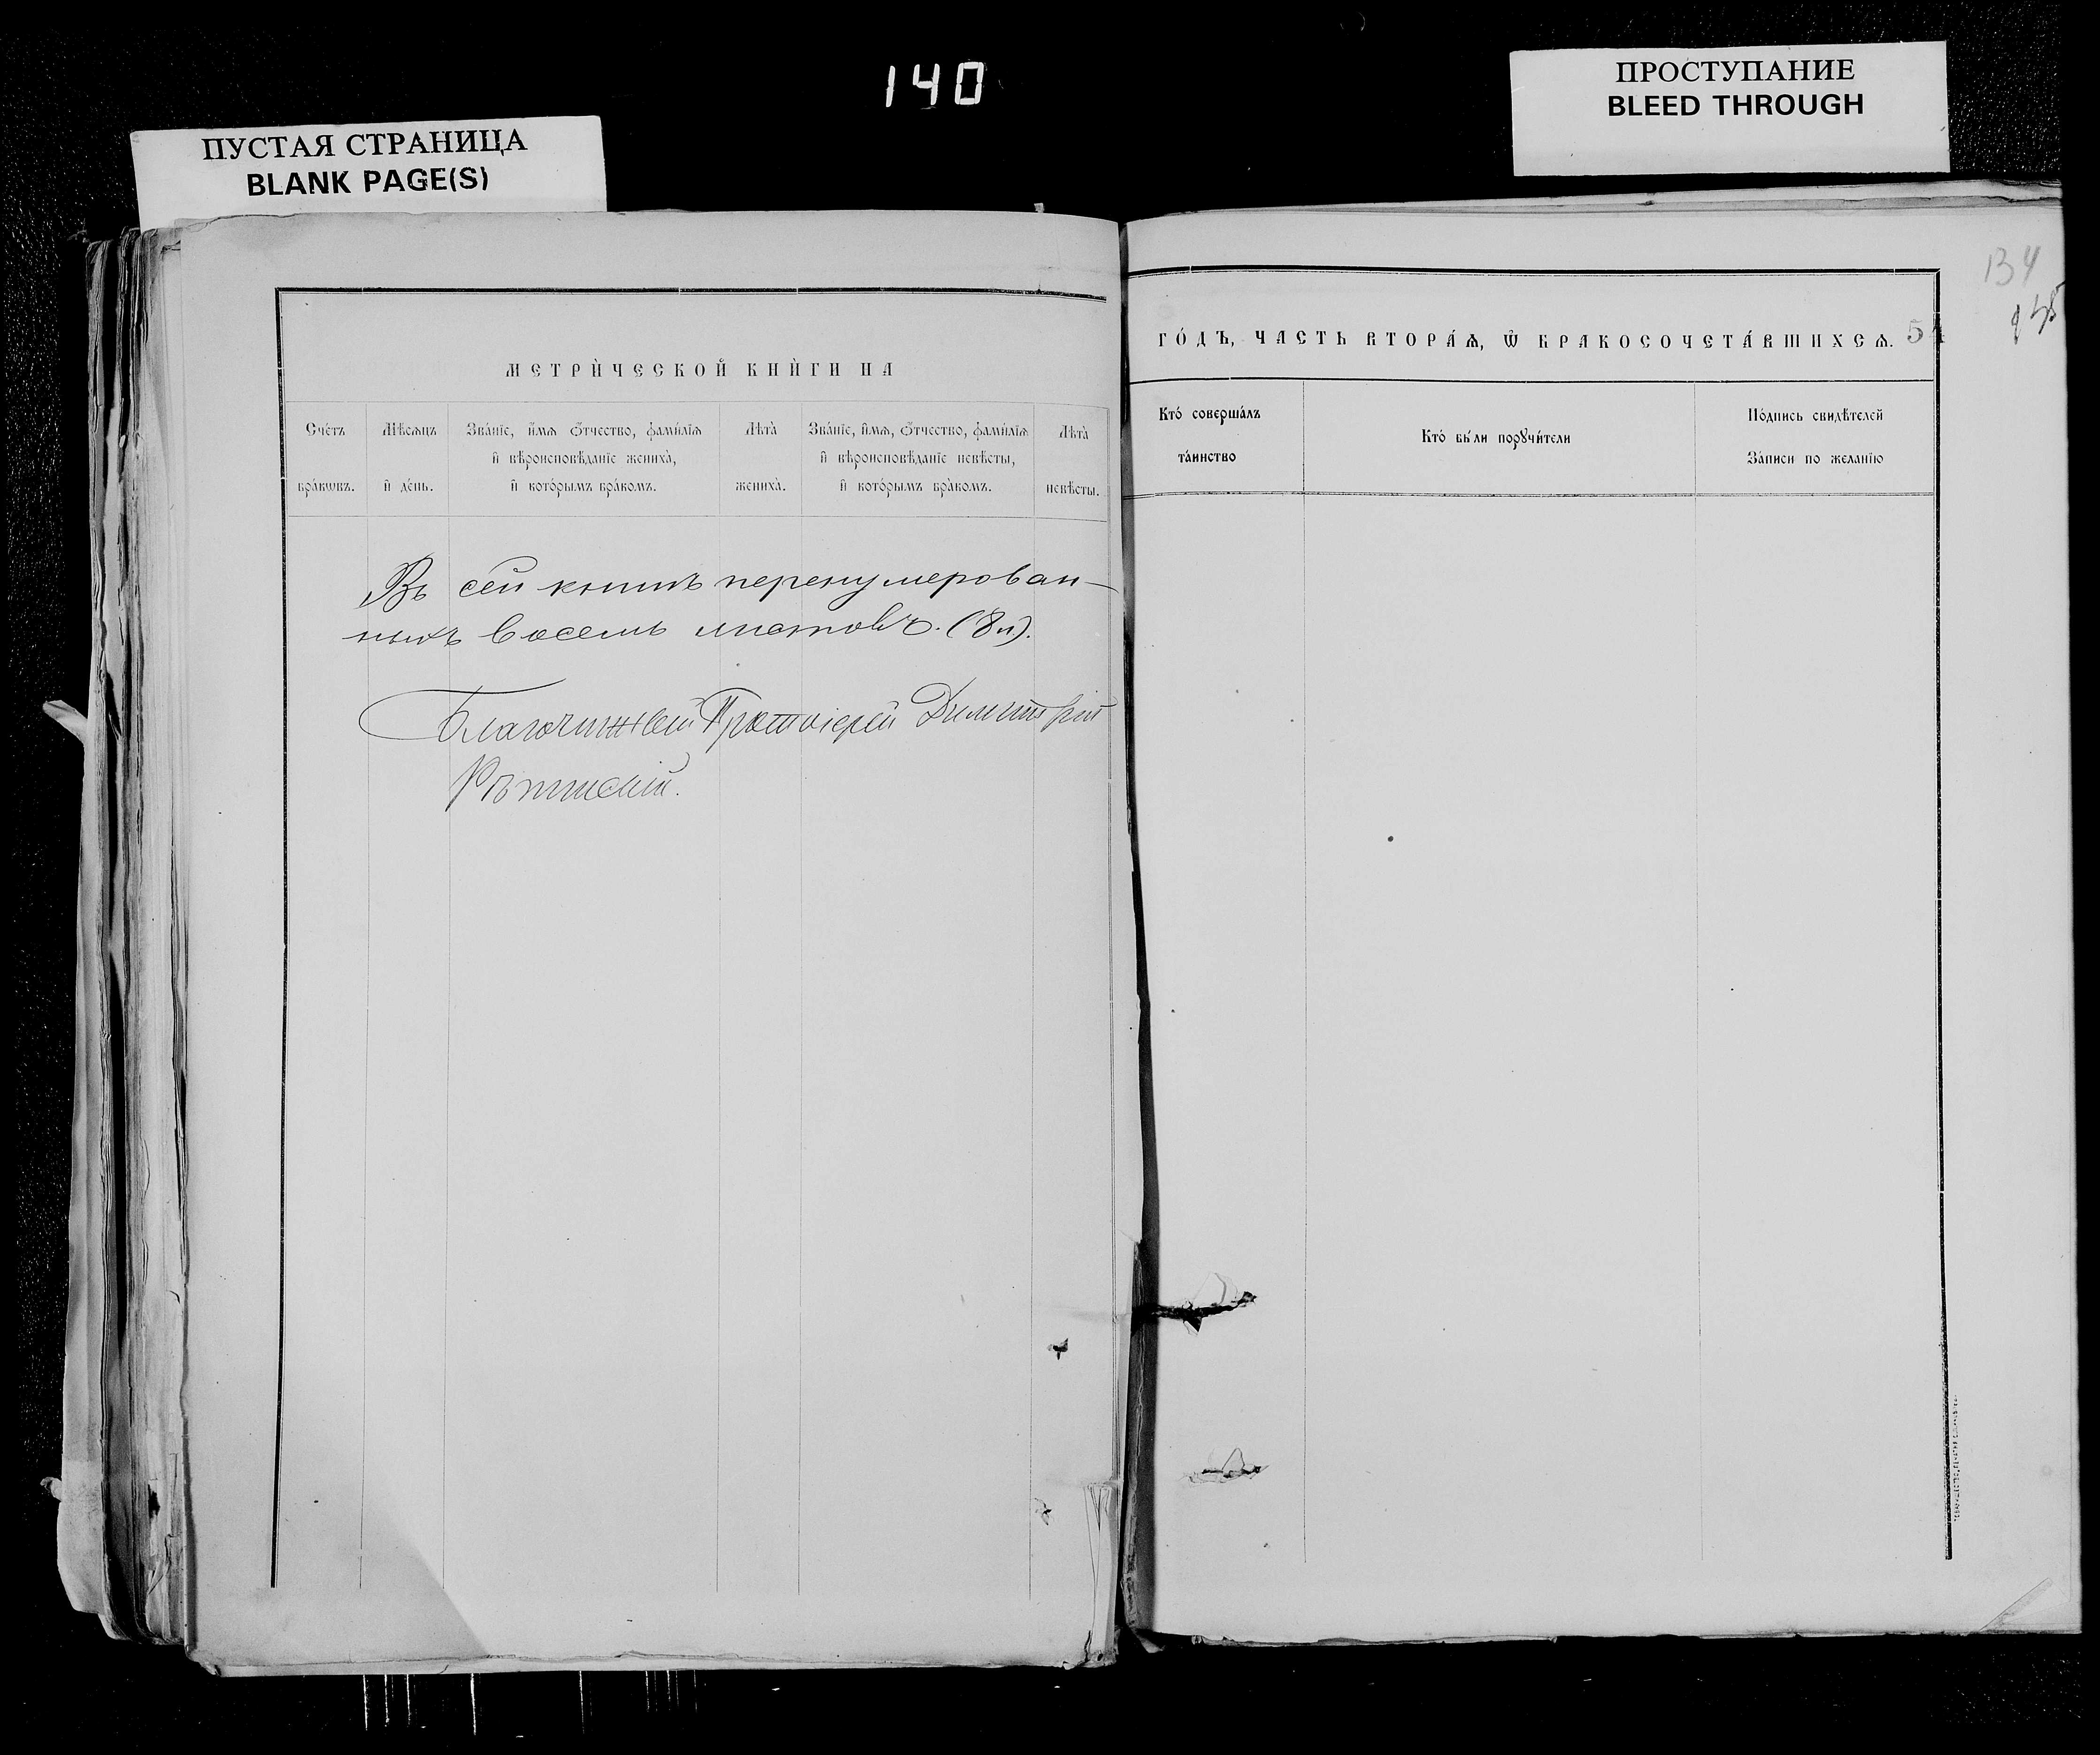 140
ПУСТАЯ СТРАНИЦА
BLANK PAGE(S)
ПРОСТУПАНИЕ
BLEED THROUGH
МЕТРИ́ЧЕСКОЙ КНИ́ГИ НА
Сче́тъ бра́кѡвъ.
Мѣ́сѧцъ и҆ де́нь.
Зва́нїе, и҆́мѧ ѻ҆́тчество, фами́лїѧ
и҆ вѣроисповѣ́данїе жениха̀,
и҆ кото́рымъ бра́комъ.
Лѣта̀ жениха̀.
Зва́нїе, и҆́мѧ, ѻ҆́тчество, фами́лїѧ
и҆ вѣроисповѣ́данїе невѣ́сты,
и҆ кото́рымъ бра́комъ.
Лѣта̀ невѣ́сты.
Въ сей книгѣ перенумерован-
ныхъ восемь листовъ. (8 л).
Благочинный Протоіерей Димитрій
Рѣпинскій.
134
ГО́ДЪ, ЧАСТЬ ВТОРА́Ѧ, Ѡ҆ БРАКОСОЧЕТА́ВШИХСѦ. 54
Кто́ соверша́лъ
та́инство
Кто́ бы́ли порꙋчи́тели
По́дпись свидѣ́телей
За́писи по жела́нїю